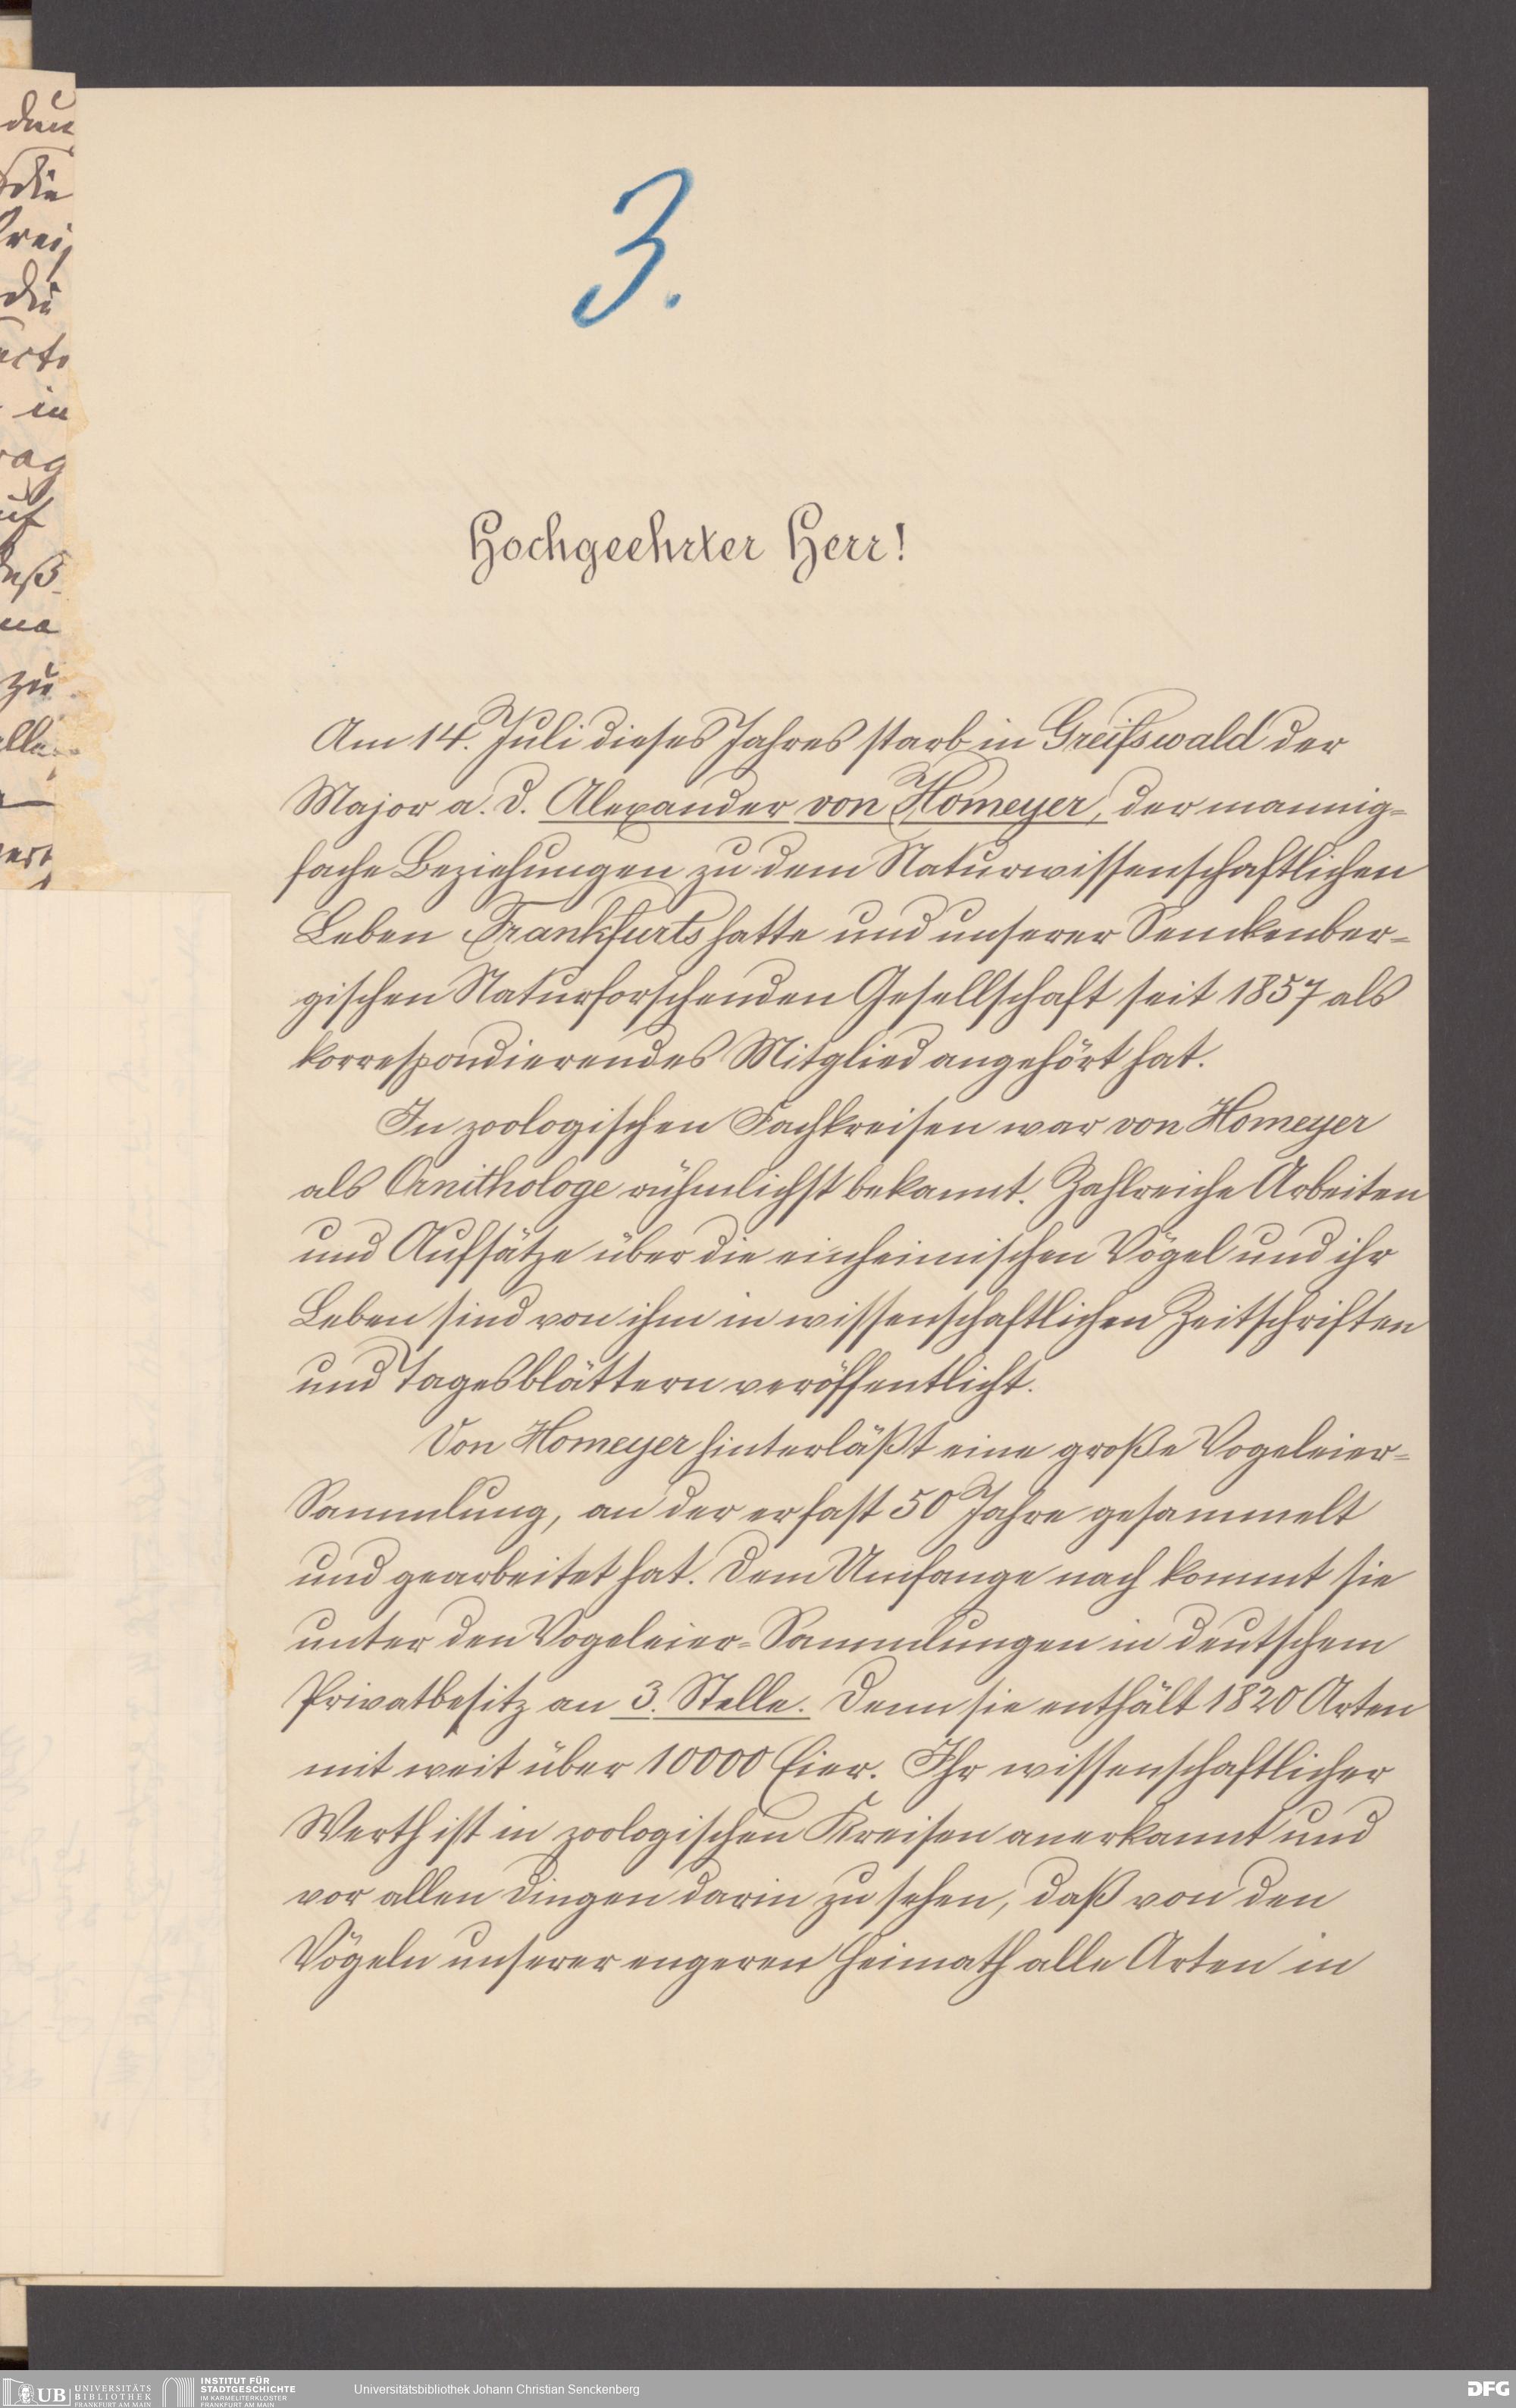 3.
Hochgeehrter Herr!
Am 14. Juli dieses Jahres starb in Greifswald der
Major a. D. Alexander von Homeyer, der mannig=
fache Beziehungen zu dem Naturwissenschaftlichen
Leben Frankfurts hatte und unserer Senckenber=
gischen Naturforschenden Gesellschaft seit 1857 als
korrespondierendes Mitglied angehört hat.
In zoologischen Fachkreisen war von Homeyer
als Ornithologe rühmlichst bekannt. Zahlreiche Arbeiten
und Aufsätze über die einheimischen Vögel und ihr
Leben sind von ihm in wissenschaftlichen Zeitschriften
und Tagesblättern veröffentlicht.
Von Homeyer hinterläßt eine große Vogeleier=
Sammlung, an der er fast 50 Jahre gesammelt
und gearbeitet hat. Dem Umfange nach kommt sie
unter den Vogeleier=Sammlungen in deutschem
Privatbesitz an 3. Stelle. Denn sie enthält 1820 Arten
mit weit über 10000 Eier. Ihr wissenschaftlicher
Werth ist in zoologischen Kreisen anerkannt und
vor allen Dingen darin zu sehen, daß von den
Vögeln unserer engeren Heimath alle Arten in
UB UNIVERSITÄTS
BIBLIOTHEK
FRANKFURT AM MAIN
INSTITUT FÜR
STADTGESCHICHTE
IM KARMELITERKLOSTER
FRANKFURT AM MAIN
Universitätsbibliothek Johann Christian Senckenberg
DFG